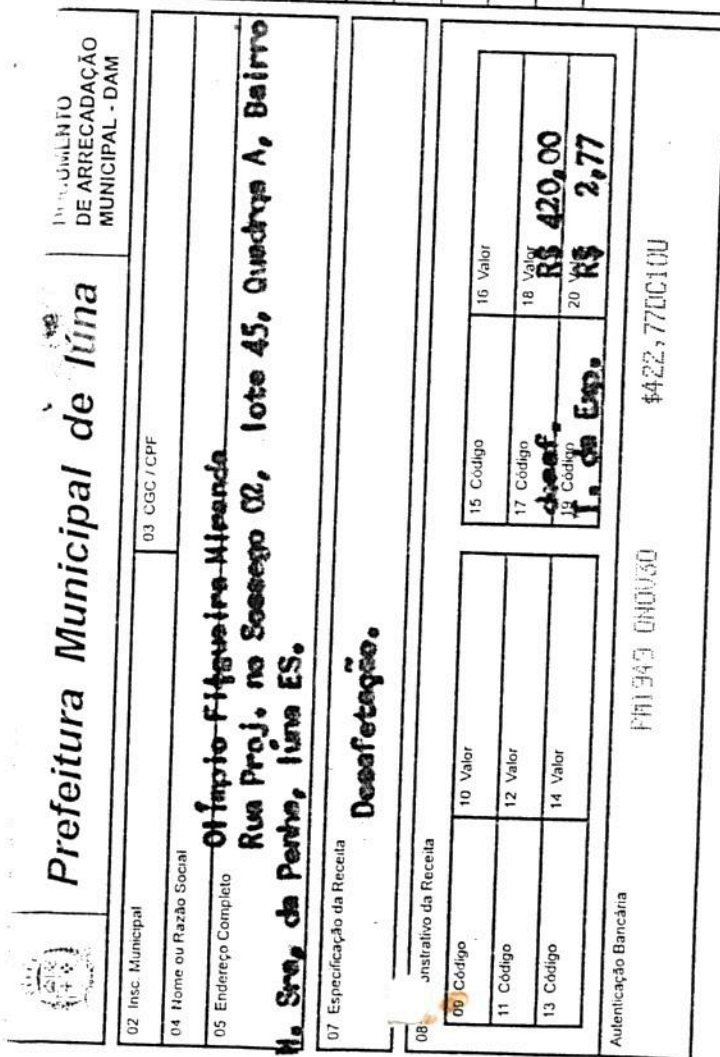 Prefeitura Municipal de Iúna
DOCUMENTO
DE ARRECADAÇÃO
MUNICIPAL - DAM
02 Insc. Municipal
03 CGC / CPF
04 Nome ou Razão Social
Olímpio Filgueira Miranda
05 Endereço Completo
Rua Proj. no Sossego 02, lote 45, Quadra A, Bairro
N. Sra, da Penha, Iúna ES.
07 Especificação da Receita
Desafetação.
08 onstrativo da Receita
09 Código
10 Valor
15 Código
16 Valor
11 Código
12 Valor
17 Código
desaf.
18 Valor
R$ 420,00
13 Código
14 Valor
19 Código
T. de Exp.
20 Valor
R$ 2,77
Autenticação Bancária
$422,77DC10U